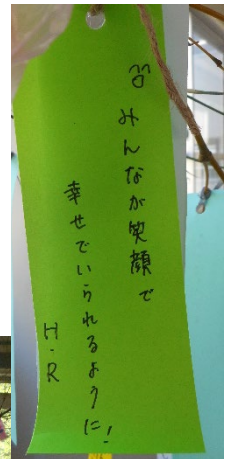 みんなが笑顔で
幸せでいられるように!
H.R